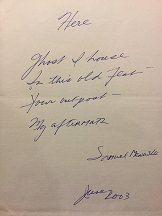 Here
Ghost I house
In this old flat—
Your outpost—
My aftermath
Samuel Menashe
June 2003